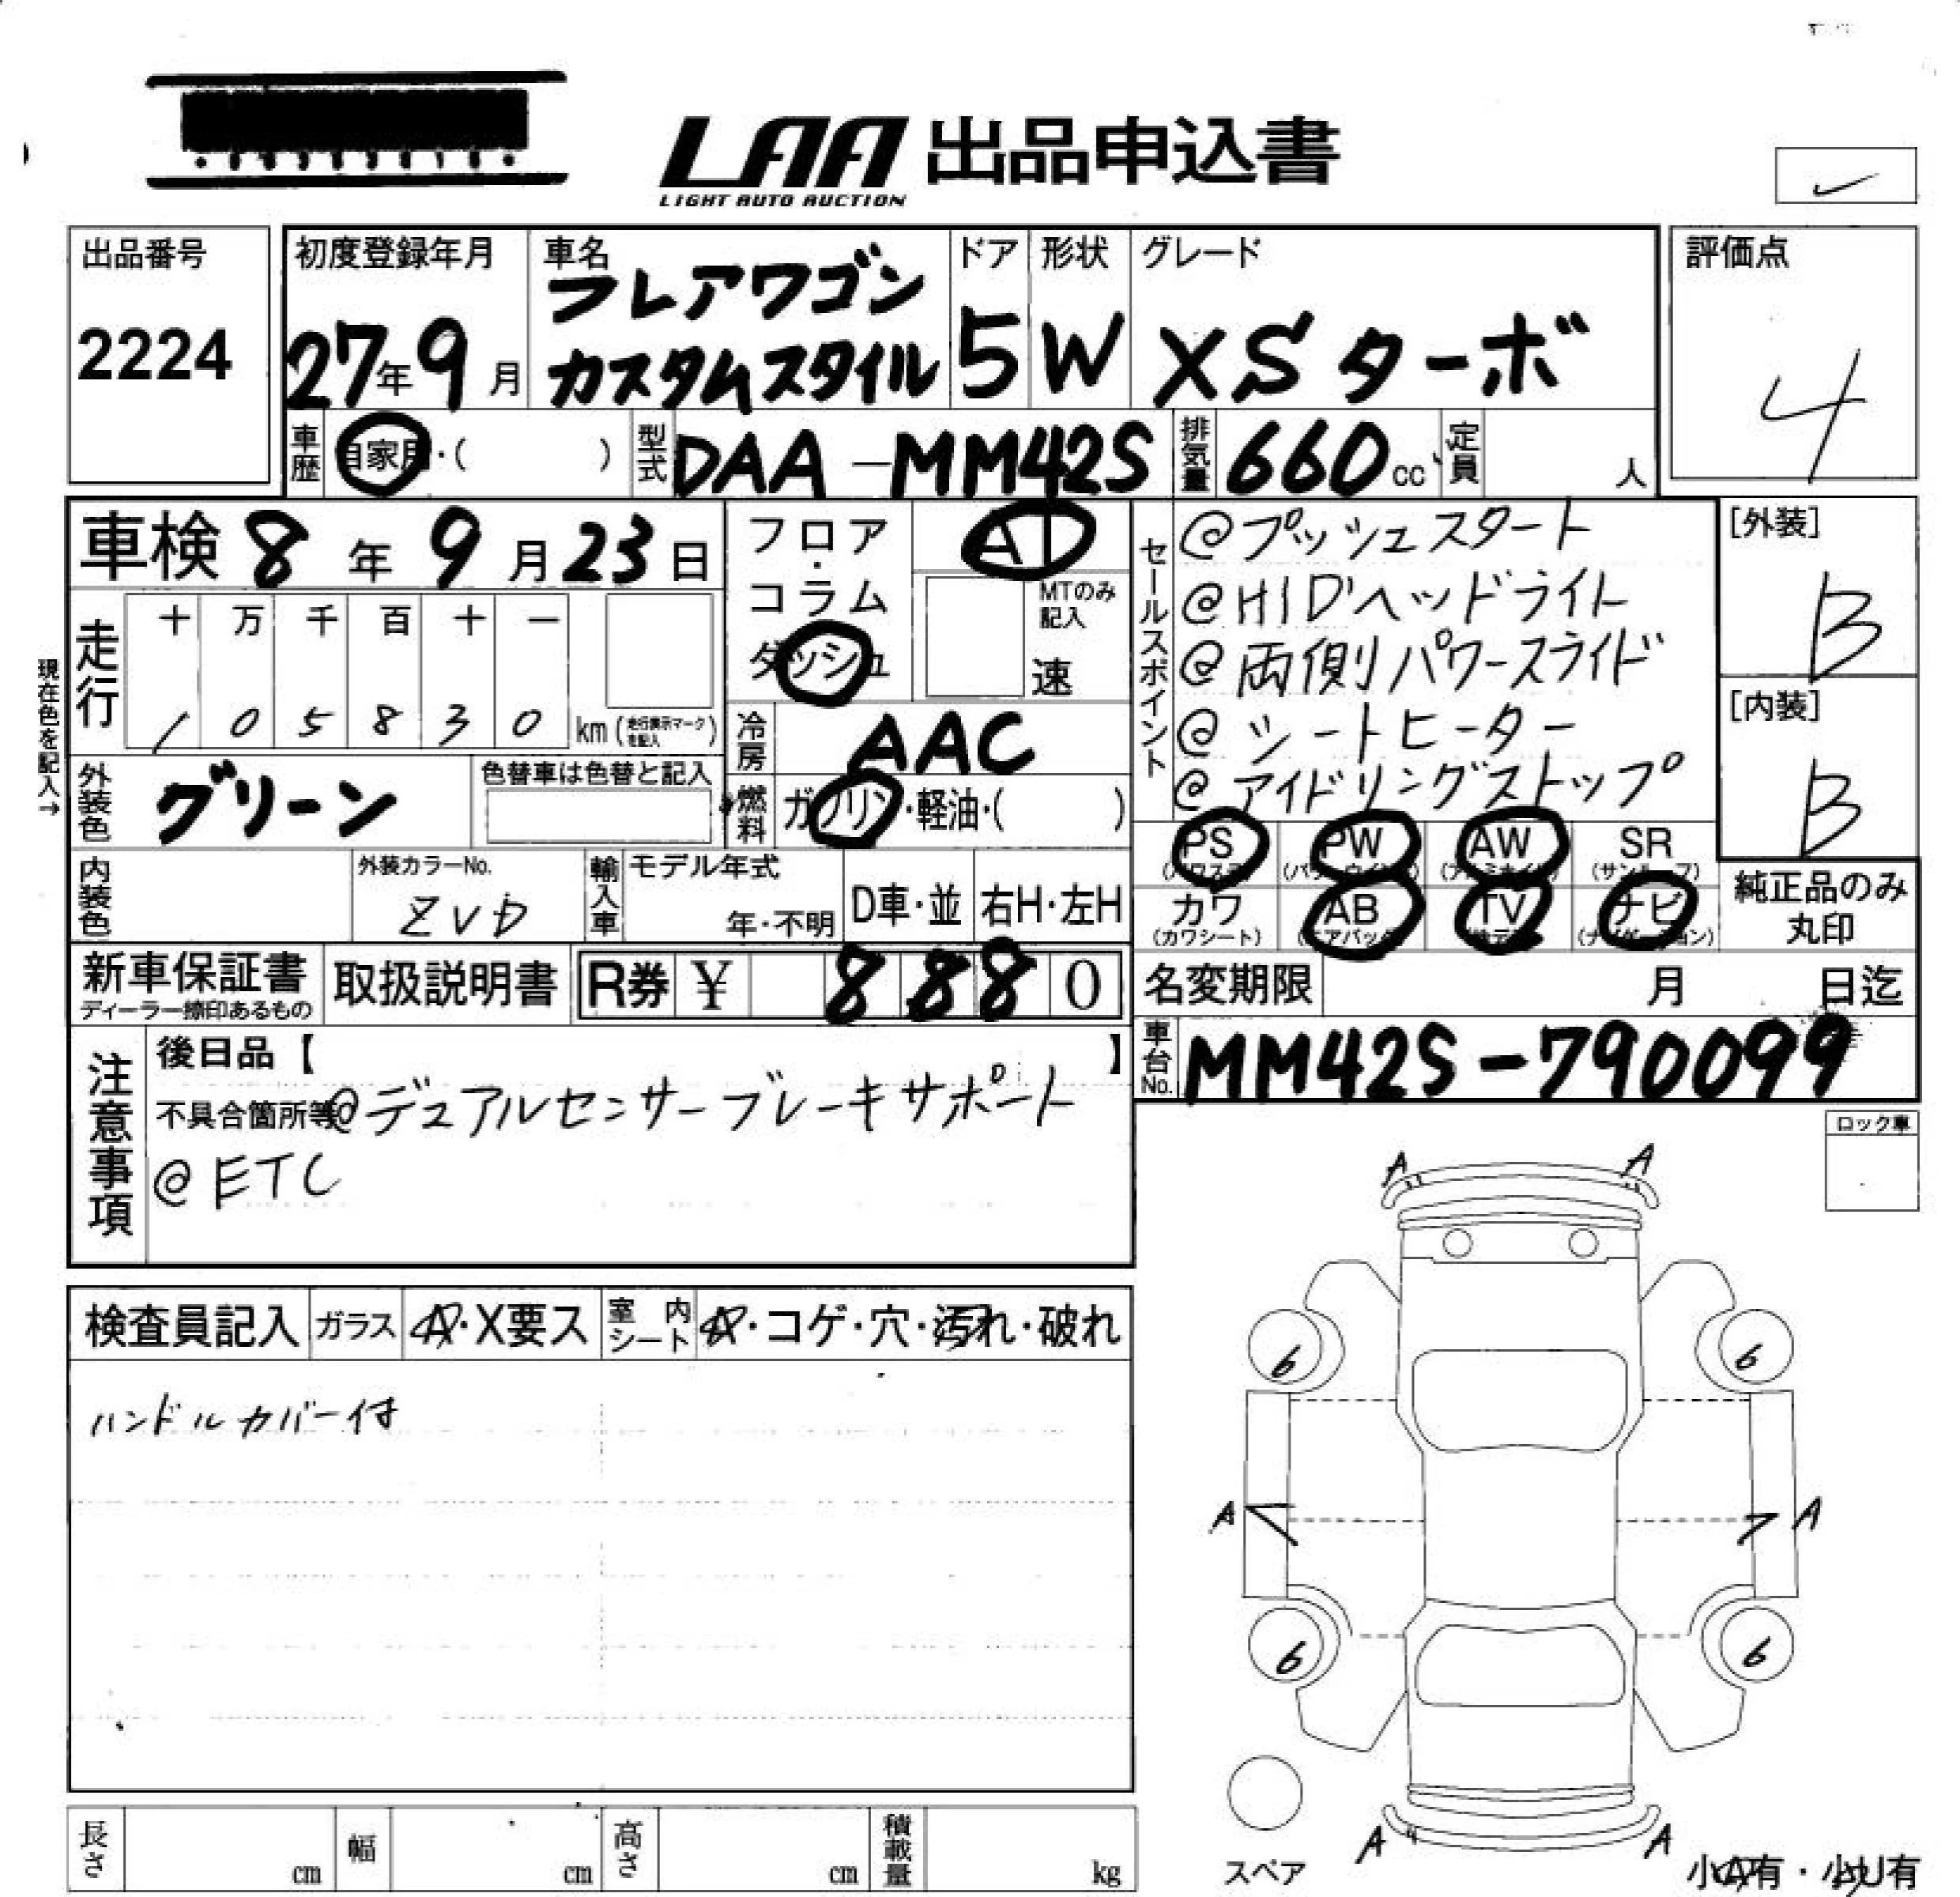 LAA 出品申込書
LIGHT AUTO AUCTION
出品番号
2224
初度登録年月
27年9月
車名
フレアワゴン
カスタムスタイル
ドア
5
形状
W
グレード
XSターボ
評価点
4
車歴
自家用・( )
型式
DAA-MM42S
排気量
660cc
定員
人
車検 8年9月23日
フロア・コラム
ダッシュ
AT
MTのみ記入
速
セールスポイント
@プッシュスタート
@HIDヘッドライト
@両側パワースライド
@シートヒーター
@アイドリングストップ
[外装]
B
[内装]
B
現在色を記入→
走行
十 万 千 百 十 一
1 0 5 8 3 0 km (走行表示マークを記入)
冷房
AAC
外装色
グリーン
色替車は色替と記入
燃料
ガソリン・軽油・( )
PS (パワステ)
PW (パワーウインド)
AW (アルミホイル)
SR (サンルーフ)
カワ (カワシート)
AB (エアバック)
TV
ナビ (ナビゲーション)
純正品のみ
丸印
内装色
外装カラーNo.
ZVD
輸入車
モデル年式
年・不明
D車・並
右H・左H
新車保証書
ディーラー捺印あるもの
取扱説明書
R券 ¥ 8880
名変期限 月 日迄
車台No.
MM42S-790099
注意事項
後日品【 】
不具合箇所等
@デュアルセンサーブレーキサポート
@ETC
ロック車
検査員記入
ガラス
A・X要ス
室内シート
A・コゲ・穴・汚れ・破れ
ハンドルカバー付
A A
6 6
A A
6 6
A A
スペア
小A有・小U有
長さ cm
幅 cm
高さ cm
積載量 kg